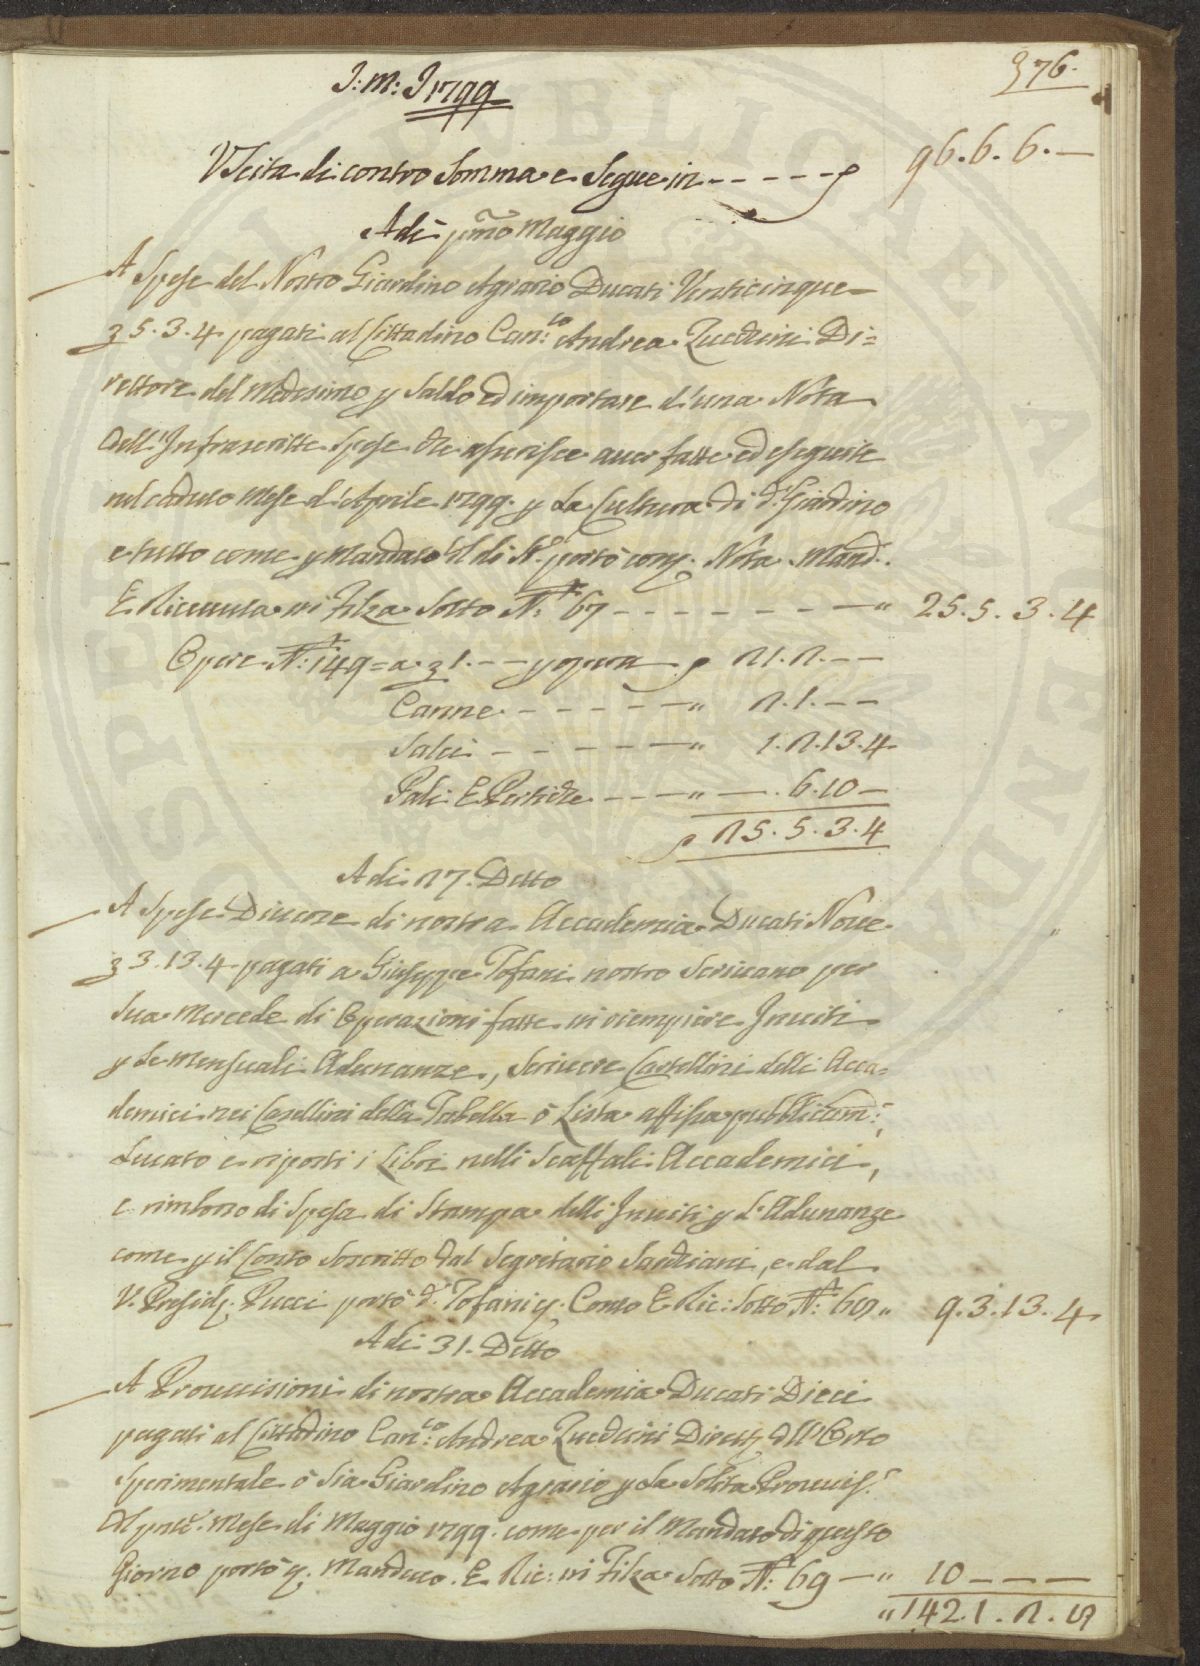 J: M: J 1799
376.
Uscita di contro Somma e Segue in - - - - - 96. 6. 6. —
Adì pmo Maggio
A Spese del Nostro Giardino Agrario Ducati Venticinque
5. 3. 4 pagati al Cittadino Can:co Andrea Zucchini Di=
rettore del Medesimo p Saldo ed importare d'una Nota
dell'Infrascritte Spese che asserisce aver fatte ed eseguite
nel caduto Mese d'Aprile 1799. p La Cultura di do Giardino
e tutto come p Mandato portò Nota Mand:
E Ricevuta in Filza Sotto N: 67 - - - - - - - " 25. 5. 3. 4
Opere N: 149 = a 1. — p opera 21. 2. — —
Canne - - - - - - " 2. 1. — —
Salci - - - - - - " 1. 2. 13. 4
Pali E Pertiche - - - " — . 6. 10 —
25. 5. 3. 4
Adì 27. Detto
A Spese Diverse di nostra Accademia Ducati Nove
3. 13. 4 pagati a Giuseppe Tofani nostro Scrivano per
Sua Mercede di Operazioni fatte in riempiere Inviti
p Le Mensuali Adunanze, Scrivere Cartellini delli Acca=
demici nei Casellini della Tabella ò Lista affissa pubblicam:e,
Levato e riposti i Libri nelli Scaffali Accademici,
e rimborso di Spesa di Stampa delli Inviti p L'Adunanze
come p il Conto Soscritto dal Segretario Sarchiani, e dal
V. Presid: Pucci portò do Tofani Conto E Ric: Sotto N: 68 " 9. 3. 13. 4
Adì 31. Detto
A Provvisioni di nostra Accademia Ducati Dieci
pagati al Cittadino Can:co Andrea Zucchini Dirett: dell'Orto
Sperimentale ò Sia Giardino Agrario p La Solita Provvis:e
del pnte Mese di Maggio 1799. come per il Mandato di questo
Giorno portò Mandato E Ric: in Filza Sotto N: 69 — " 10 — — —
" 142. 1. 2. 8